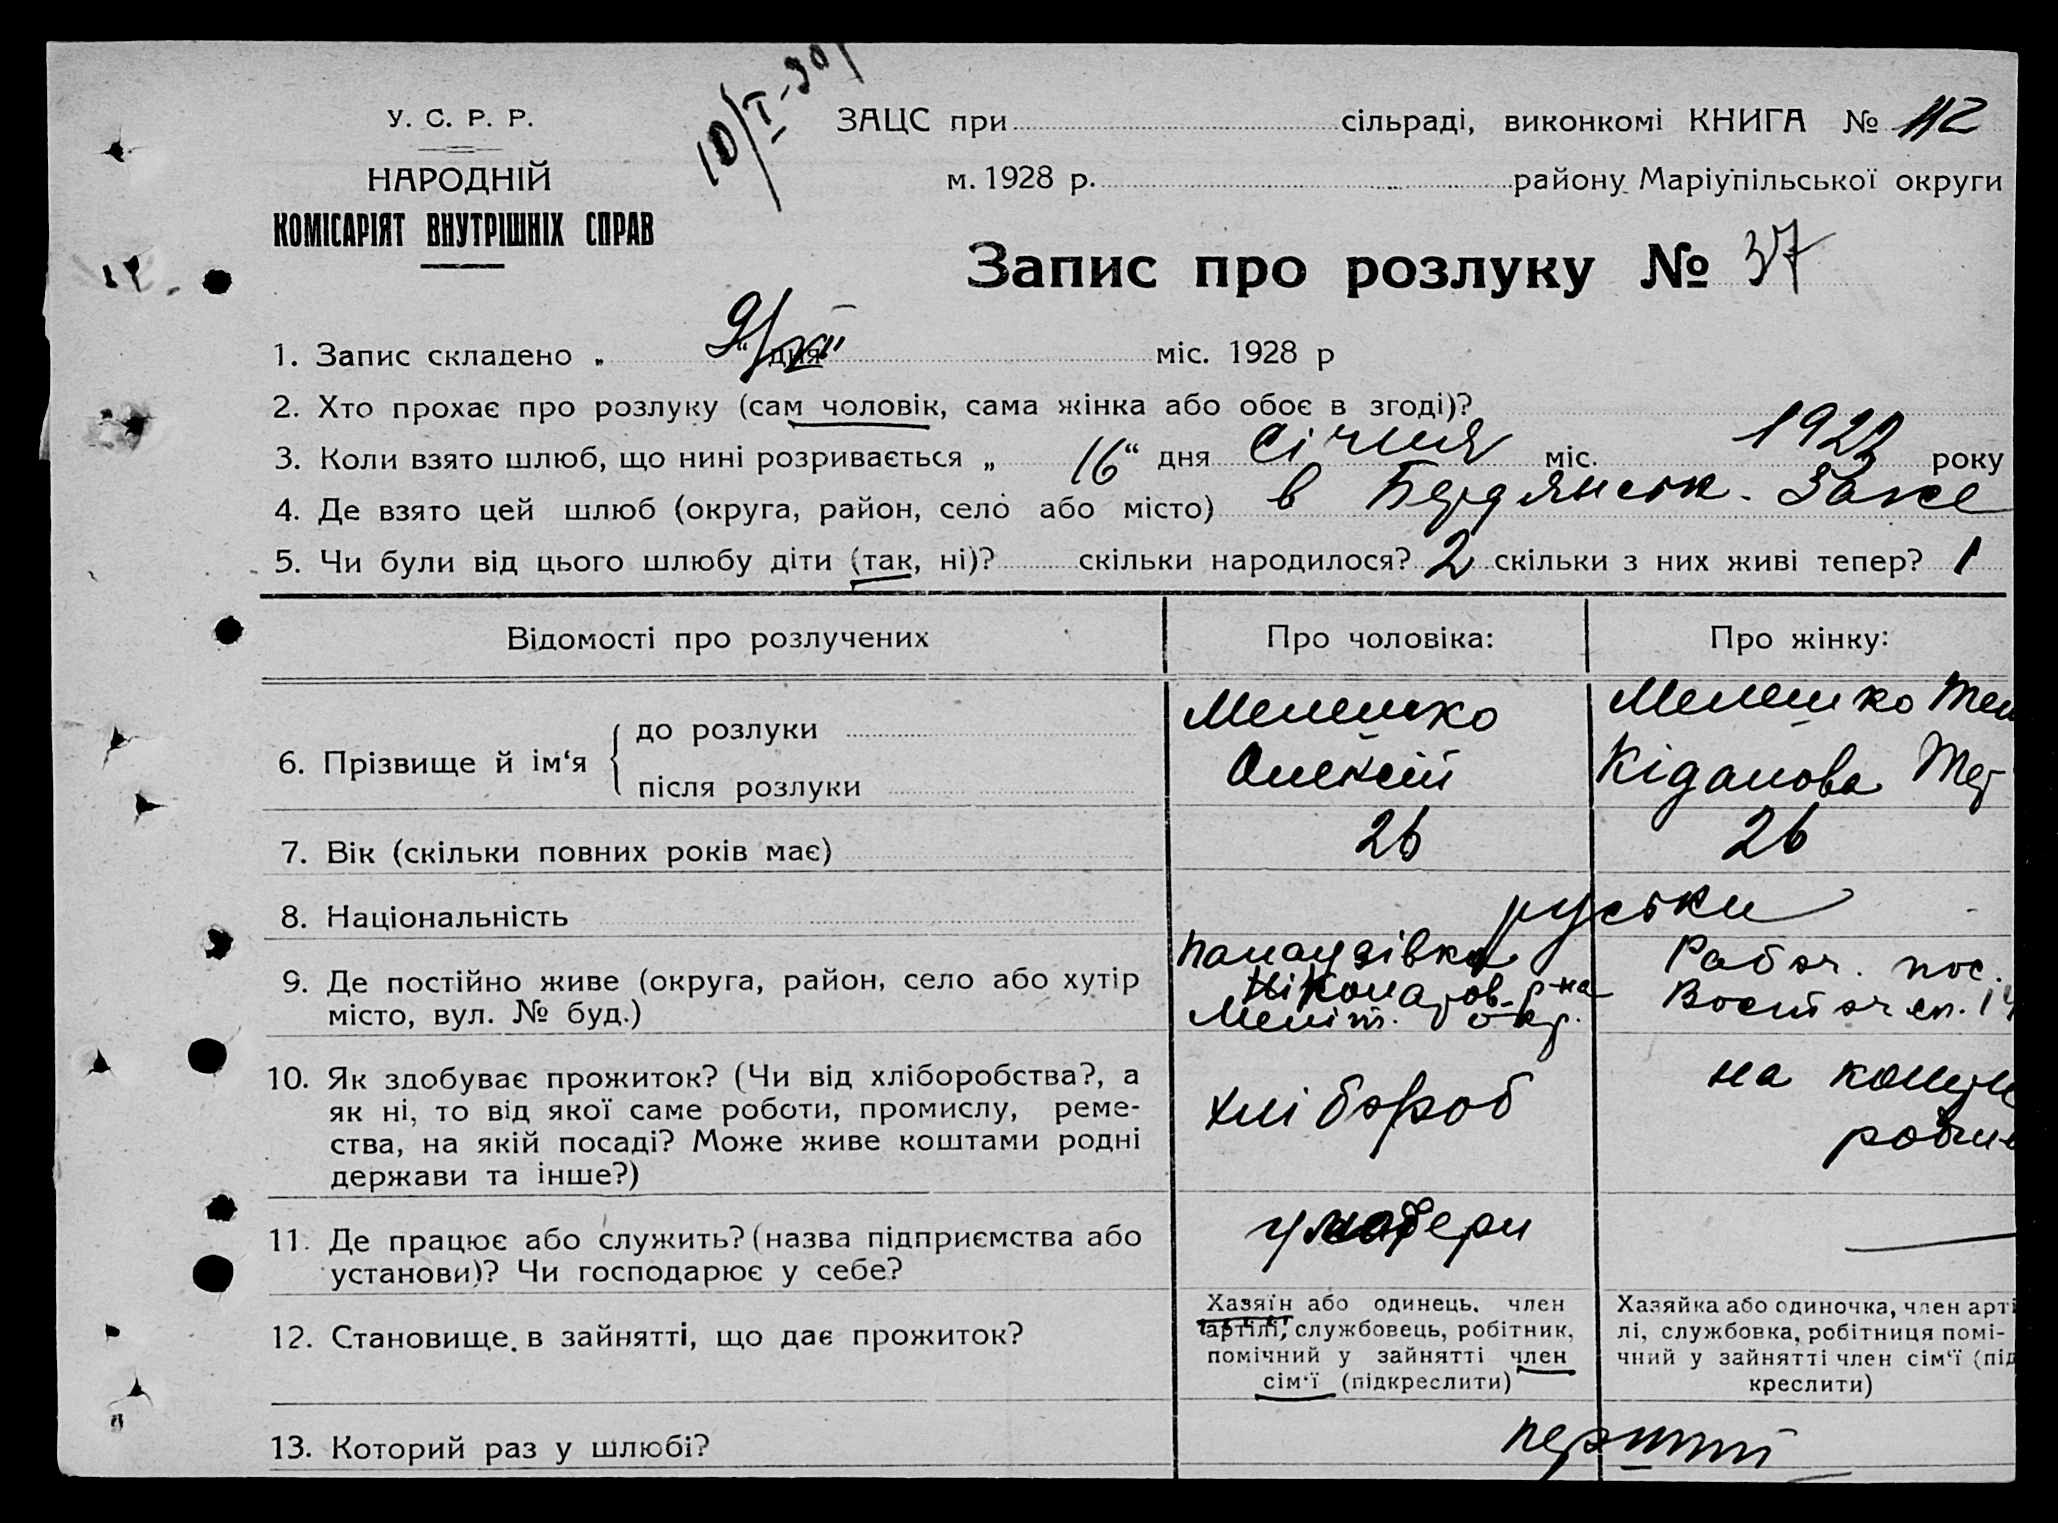 10/I-30
У. С. Р. Р.
НАРОДНІЙ
КОМІСАРІЯТ ВНУТРІШНІХ СПРАВ
ЗАЦС при сільраді, виконкомі КНИГА № 112
м. 1928 р. району Маріупільської округи
Запис про розлуку № 37
1. Запис складено „ 9/ “ дня міс. 1928 р
2. Хто прохає про розлуку (сам чоловік, сама жінка або обоє в згоді)?
3. Коли взято шлюб, що нині розривається „ 16“ дня Січня міс. 1922 року
4. Де взято цей шлюб (округа, район, село або місто) в Бердянськ. Загсе
5. Чи були від цього шлюбу діти (так, ні)? скільки народилося? 2 скільки з них живі тепер? 1
Відомості про розлучених Про чоловіка: Про жінку:
6. Прізвище й ім‘я
до розлуки
після розлуки
Мелешко
Олексій
Мелешко
Кіданова
7. Вік (скільки повних років має) 26 26
8. Національність руськи
9. Де постійно живе (округа, район, село або хутір
місто, вул. № буд.)
р-на
Меліт. окр.
Рабоч. пос.
10. Як здобуває прожиток? (Чи від хліборобства?, а
як ні, то від якої саме роботи, промислу, реме-
ства, на якій посаді? Може живе коштами родні
держави та інше?)
хлібороб
на
11. Де працює або служить? (назва підприємства або
установи)? Чи господарює у себе?
у матери
12. Становище в зайнятті, що дає прожиток?
Хазяїн або одинець, член
артілі, службовець, робітник,
помічний у зайнятті член
сім‘ї (підкреслити)
Хазяйка або одиночка, член арті
лі, службовка, робітниця помі-
чний у зайнятті член сім‘ї (під
креслити)
13. Которий раз у шлюбі? перший